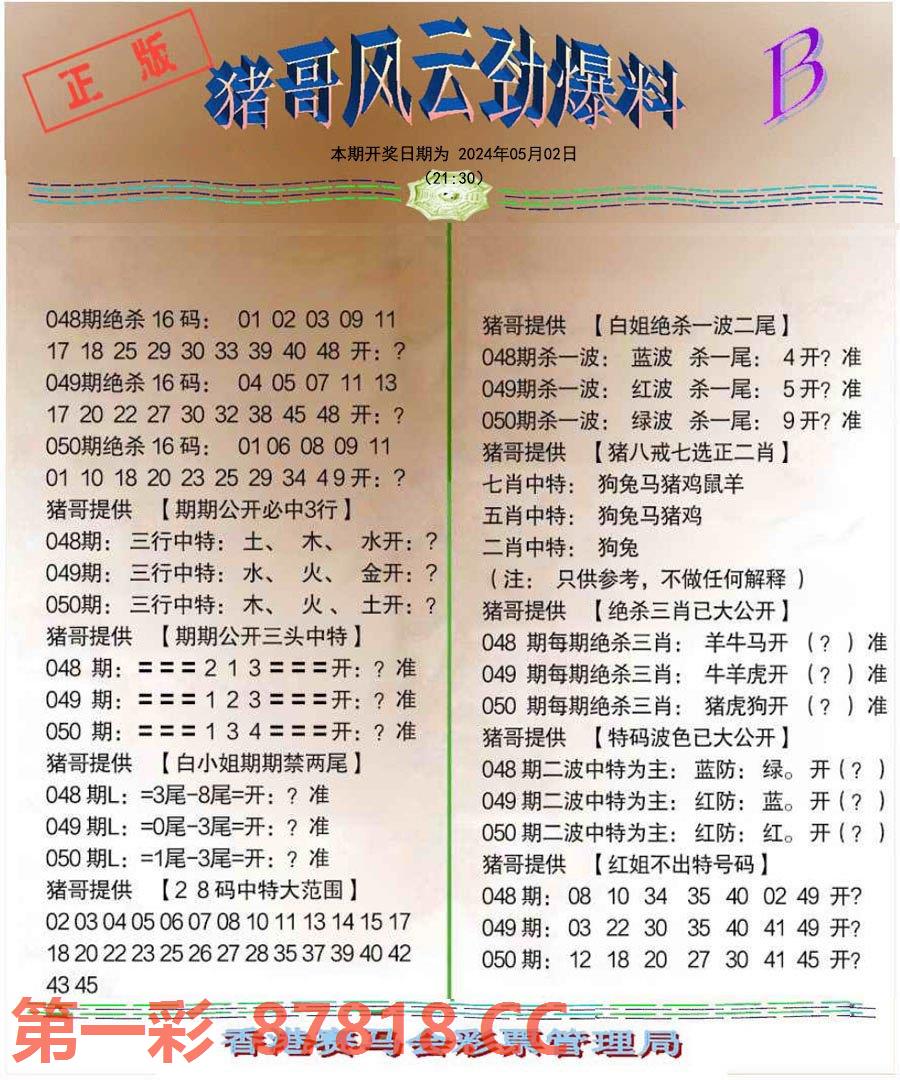 正版
猪哥风云劲爆料
B
本期开奖日期为 2024年05月02日
(21:30)
048期绝杀 16 码： 01 02 03 09 11
17 18 25 29 30 33 39 40 48 开：?
049期绝杀 16 码： 04 05 07 11 13
17 20 22 27 30 32 38 45 48 开：?
050期绝杀 16 码： 01 06 08 09 11
01 10 18 20 23 25 29 34 4 9 开：?
猪哥提供 【期期公开必中3行】
048期：三行中特：土、 木、 水开：?
049期：三行中特：水、 火、 金开：?
050期：三行中特：木、 火 、 土开：?
猪哥提供 【期期公开三头中特】
048 期：＝＝＝2 1 3＝＝＝开：? 准
049 期：＝＝＝1 2 3＝＝＝开：? 准
050 期：＝＝＝1 3 4＝＝＝开：? 准
猪哥提供 【白小姐期期禁两尾】
048 期L：=3尾-8尾=开：? 准
049 期L：=0尾-3尾=开：? 准
050 期L：=1尾-3尾=开：? 准
猪哥提供 【2 8 码中特大范围】
02 03 04 05 06 07 08 10 11 13 14 15 17
18 20 22 23 25 26 27 28 35 37 39 40 42
43 45
猪哥提供 【白姐绝杀一波二尾】
048期杀一波： 蓝波 杀一尾： 4 开? 准
049期杀一波： 红波 杀一尾： 5 开? 准
050期杀一波： 绿波 杀一尾： 9 开? 准
猪哥提供 【猪八戒七选正二肖】
七肖中特： 狗兔马猪鸡鼠羊
五肖中特： 狗兔马猪鸡
二肖中特： 狗兔
（注： 只供参考，不做任何解释 ）
猪哥提供 【绝杀三肖已大公开】
048 期每期绝杀三肖： 羊牛马开 （? ）准
049 期每期绝杀三肖： 牛羊虎开 （? ）准
050 期每期绝杀三肖： 猪虎狗开 （? ）准
猪哥提供 【特码波色已大公开】
048 期二波中特为主：蓝防：绿。开（? ）
049 期二波中特为主：红防：蓝。开（? ）
050 期二波中特为主：红防：红。开（? ）
猪哥提供 【红姐不出特号码】
048 期： 08 10 34 35 40 02 49 开?
049 期： 03 22 30 35 40 41 49 开?
050 期： 12 18 20 27 30 41 45 开?
第一彩 87818.CC
香港赛马会彩票管理局